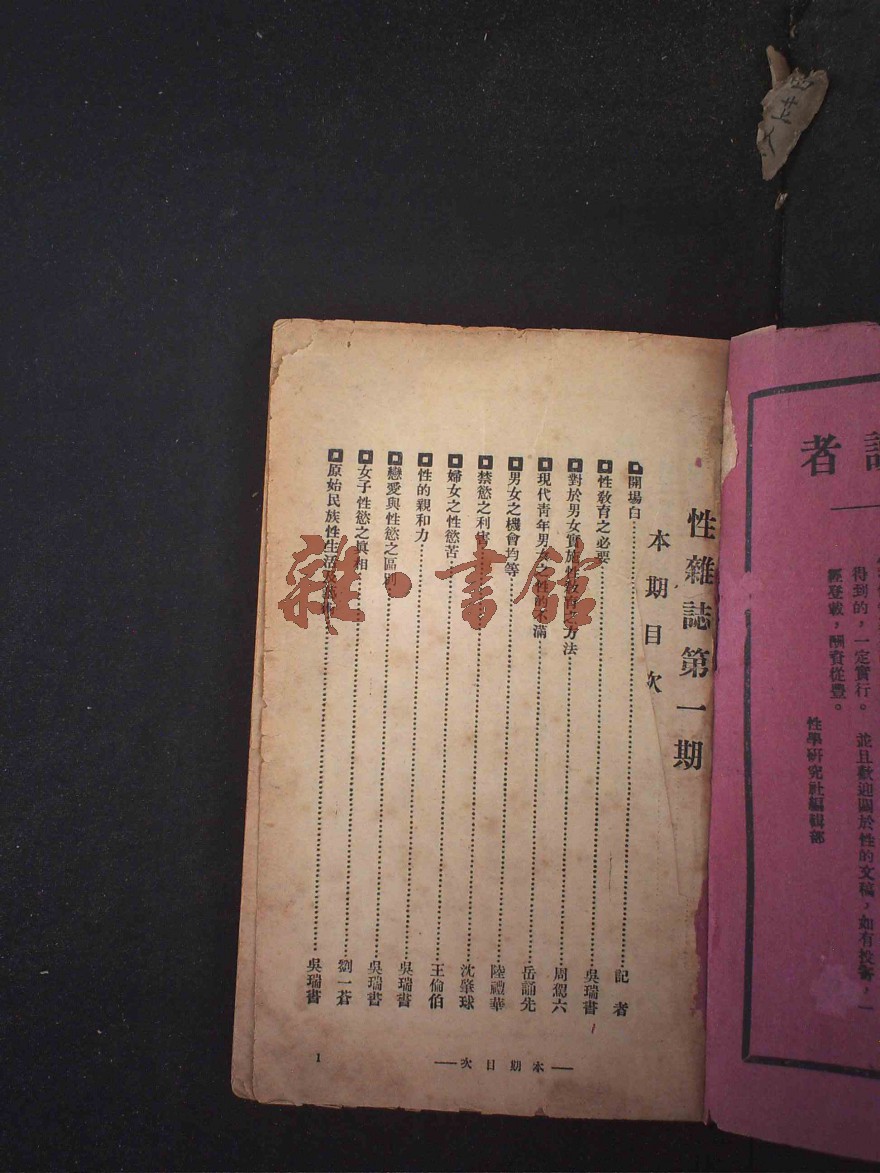 性雜誌第一期
本期目次
開場白……記者
性教育之必要……吳瑞書
對於男女實施性教育之方法……周㵑六
現代青年男女之性的不滿……岳誦先
男女之機會均等……陸禮華
禁慾之利害……沈肇球
婦女之性慾苦……王倫伯
性的親和力……吳瑞書
戀愛與性慾之區別……吳瑞書
女子性慾之眞相……劉一蒼
原始民族性生活及……吳瑞書
—本期目次—
1
者
得到的，一定實行。 並且歡迎關於性的文稿，如有投寄，一
經登載，酬資從豐。
性學研究社編輯部
雜·書館